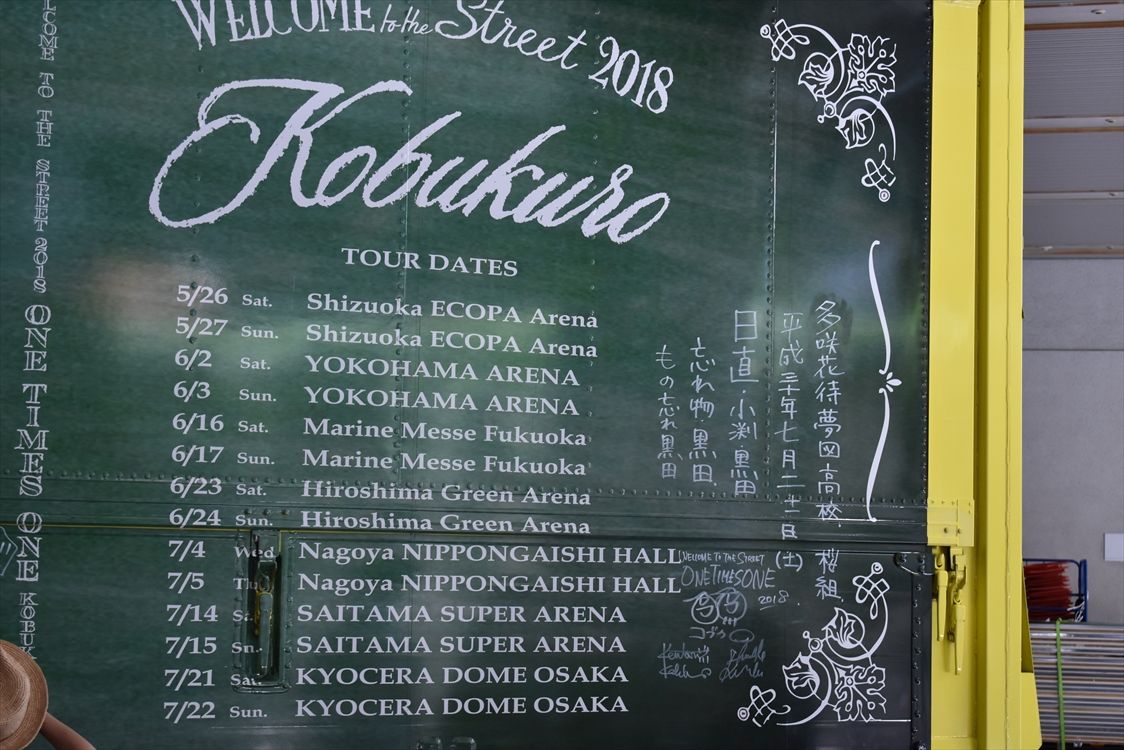 WELCOME to the Street 2018
Kobukuro
TOUR DATES
5/26 Sat. Shizuoka ECOPA Arena
5/27 Sun. Shizuoka ECOPA Arena
6/2 Sat. YOKOHAMA ARENA
6/3 Sun. YOKOHAMA ARENA
6/16 Sat. Marine Messe Fukuoka
6/17 Sun. Marine Messe Fukuoka
6/23 Sat. Hiroshima Green Arena
6/24 Sun. Hiroshima Green Arena
7/4 Wed. Nagoya NIPPONGAISHI HALL
7/5 Thu Nagoya NIPPONGAISHI HALL
7/14 Sa SAITAMA SUPER ARENA
7/15 Sn. SAITAMA SUPER ARENA
7/21 Sat. KYOCERA DOME OSAKA
7/22 Sun. KYOCERA DOME OSAKA
多咲花待夢図高校 桜組
平成三十年七月二十一日(土)
日直・小渕黒田
忘れ物・黒田
もの忘れ黒田
WELCOME TO THE STREET
ONE TIMES ONE
2018
コブクロ
LCOME TO THE STREET 2018 ONE TIMES ONE KOBUK